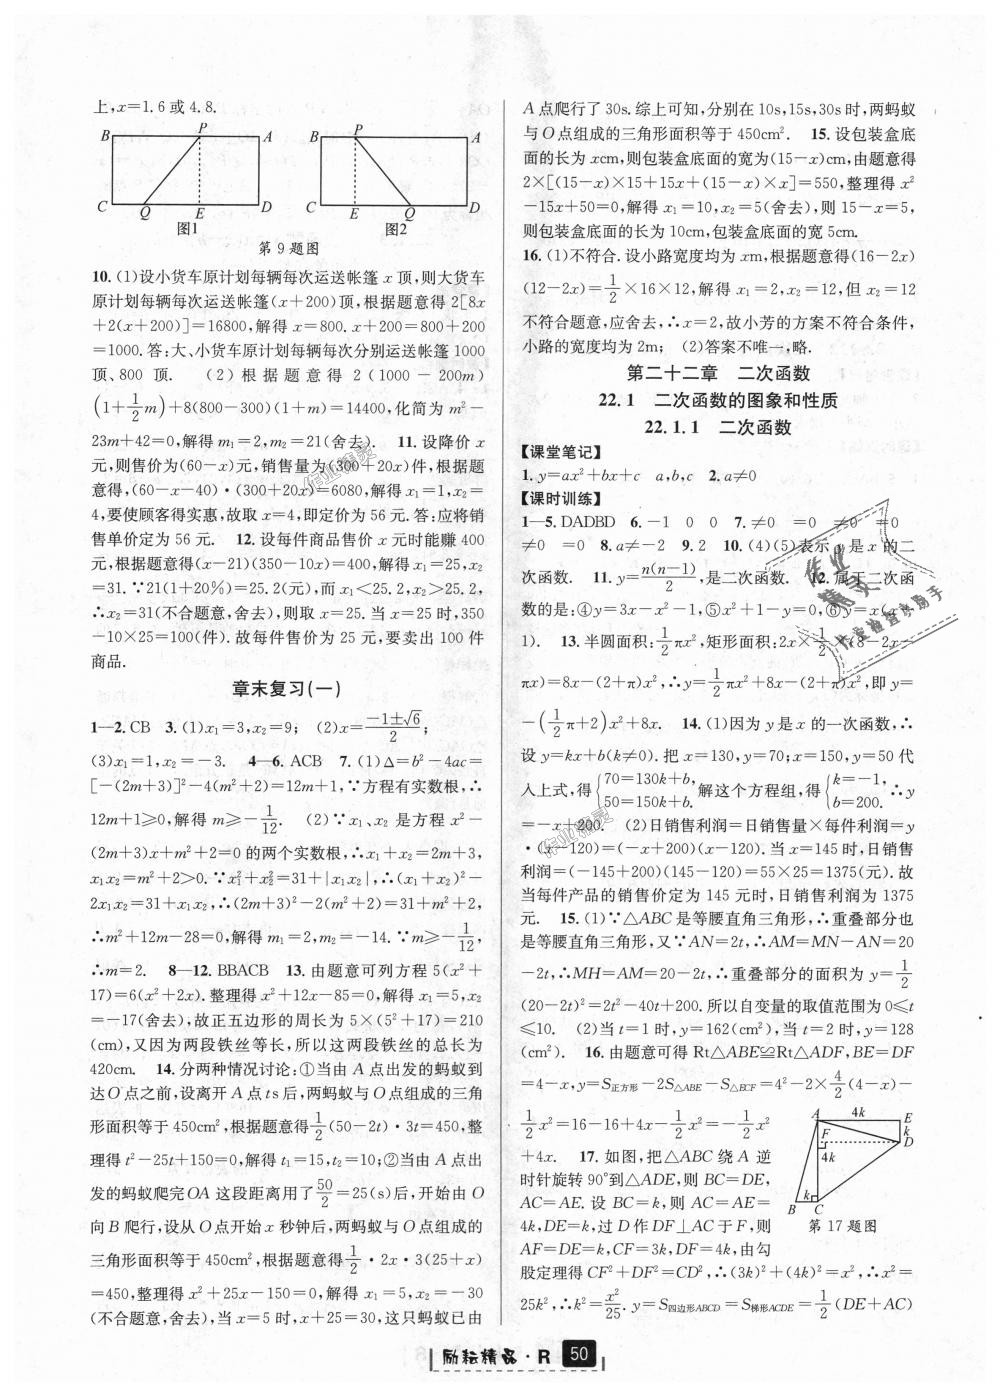 上,x=1.6或4.8.
B P A
C Q E D
图1
B P A
C E Q D
图2
第9题图
10. (1)设小货车原计划每辆每次运送帐篷x顶,则大货车
原计划每辆每次运送帐篷(x+200)顶,根据题意得2[8x
+2(x+200)]=16800,解得x=800. x+200=800+200
=1000.答:大、小货车原计划每辆每次分别运送帐篷1000
顶、800顶. (2)根据题意得2(1000-200m)
(1+1/2m)+8(800-300)(1+m)=14400,化简为m²-
23m+42=0,解得m₁=2,m₂=21(舍去). 11. 设降价x
元,则售价为(60-x)元,销售量为(300+20x)件,根据题
意得,(60-x-40)·(300+20x)=6080,解得x₁=1,x₂=
4,要使顾客得实惠,故取x=4,即定价为56元.答:应将销
售单价定为56元. 12. 设每件商品售价x元时能赚400
元,根据题意得(x-21)(350-10x)=400,解得x₁=25,x₂
=31.∵21(1+20%)=25.2(元),而x₁<25.2,x₂>25.2,
∴x₂=31(不合题意,舍去),则取x=25.当x=25时,350
-10×25=100(件).故每件售价为25元,要卖出100件
商品.
章末复习(一)
1—2. CB 3. (1)x₁=3,x₂=9; (2)x=(-1±√6)/2;
(3)x₁=1,x₂=-3. 4—6. ACB 7. (1)Δ=b²-4ac=
[-(2m+3)]²-4(m²+2)=12m+1,∵方程有实数根,∴
12m+1≥0,解得m≥-1/12. (2)∵x₁、x₂是方程x²-
(2m+3)x+m²+2=0的两个实数根,∴x₁+x₂=2m+3,
x₁x₂=m²+2>0.∵x₁²+x₂²=31+|x₁x₂|,∴(x₁+x₂)²-
2x₁x₂=31+x₁x₂,∴(2m+3)²-2(m²+2)=31+m²+2,
∴m²+12m-28=0,解得m₁=2,m₂=-14.∵m≥-1/12,
∴m=2. 8—12. BBACB 13. 由题意可列方程5(x²+
17)=6(x²+2x).整理得x²+12x-85=0,解得x₁=5,x₂
=-17(舍去),故正五边形的周长为5×(5²+17)=210
(cm),又因为两段铁丝等长,所以这两段铁丝的总长为
420cm. 14. 分两种情况讨论:①当由A点出发的蚂蚁到
达O点之前,设离开A点ts后,两蚂蚁与O点组成的三角
形面积等于450cm²,根据题意得1/2(50-2t)·3t=450,整
理得t²-25t+150=0,解得t₁=15,t₂=10;②当由A点出
发的蚂蚁爬完OA这段距离用了50/2=25(s)后,开始由O
向B爬行,设从O点开始x秒钟后,两蚂蚁与O点组成的
三角形面积等于450cm²,根据题意得1/2·2x·3(25+x)
=450,整理得x²+25x-150=0,解得x₁=5,x₂=-30
(不合题意,舍去),当x=5时,x+25=30,这只蚂蚁已由
A点爬行了30s.综上可知,分别在10s,15s,30s时,两蚂蚁
与O点组成的三角形面积等于450cm². 15. 设包装盒底
面的长为xcm,则包装盒底面的宽为(15-x)cm,由题意得
2×[(15-x)×15+15x+(15-x)×x]=550,整理得x²
-15x+50=0,解得x₁=10,x₂=5(舍去),则15-x=5,
则包装盒底面的长为10cm,包装盒底面的宽5cm.
16. (1)不符合.设小路宽度均为xm,根据题意得(16-2x)
(12-2x)=1/2×16×12,解得x₁=2,x₂=12,但x₂=12
不符合题意,应舍去,∴x=2,故小芳的方案不符合条件,
小路的宽度均为2m; (2)答案不唯一,略.
第二十二章 二次函数
22.1 二次函数的图象和性质
22.1.1 二次函数
【课堂笔记】
1. y=ax²+bx+c a,b,c 2. a≠0
【课时训练】
1—5. DADBD 6. -1 0 0 7. ≠0 =0 ≠0 =0
≠0 =0 8. a≠-2 9. 2 10. (4)(5)表示y是x的二
次函数. 11. y=n(n-1)/2,是二次函数. 12. 属于二次函
数的是:④y=3x-x²-1,⑤x²+1-y=0,⑥y=x(x-
1). 13. 半圆面积:1/2πx²,矩形面积:2x×1/2(8-2x-
πx)=8x-(2+π)x²,∴y=1/2πx²+8x-(2+π)x²,即y=
-(1/2π+2)x²+8x. 14. (1)因为y是x的一次函数,∴
设y=kx+b(k≠0).把x=130,y=70;x=150,y=50代
入上式,得{70=130k+b, 50=150k+b.解这个方程组,得{k=-1, b=200.∴y
=-x+200. (2)日销售利润=日销售量×每件利润=y
·(x-120)=(-x+200)(x-120).当x=145时,日销售
利润=(-145+200)(145-120)=55×25=1375(元).故
当每件产品的销售价定为145元时,日销售利润为1375
元. 15. (1)∵△ABC是等腰直角三角形,∴重叠部分也
是等腰直角三角形,又∵AN=2t,∴AM=MN-AN=20
-2t,∴MH=AM=20-2t,∴重叠部分的面积为y=1/2
(20-2t)²=2t²-40t+200.所以自变量的取值范围为0≤t
≤10. (2)当t=1时,y=162(cm²),当t=2时,y=128
(cm²). 16. 由题意可得Rt△ABE≌Rt△ADF,BE=DF
=4-x,y=S正方形-2S△ABE-S△ECF=4²-2×4/2(4-x)-
1/2x²=16-16+4x-1/2x²=-1/2x²
+4x. 17. 如图,把△ABC绕A逆
时针旋转90°到△ADE,则BC=DE,
AC=AE.设BC=k,则AC=AE=
4k,DE=k,过D作DF⊥AC于F,则
AF=DE=k,CF=3k,DF=4k,由勾
股定理得CF²+DF²=CD²,∴(3k)²+(4k)²=x²,∴x²=
25k²,∴k²=x²/25. y=S四边形ABCD=S梯形ACDE=1/2(DE+AC)
A 4k E
k
F D
4k
B C
第17题图
作业精灵
作业精灵
作业
精灵
作业检查小助手
励耘精品·R 50